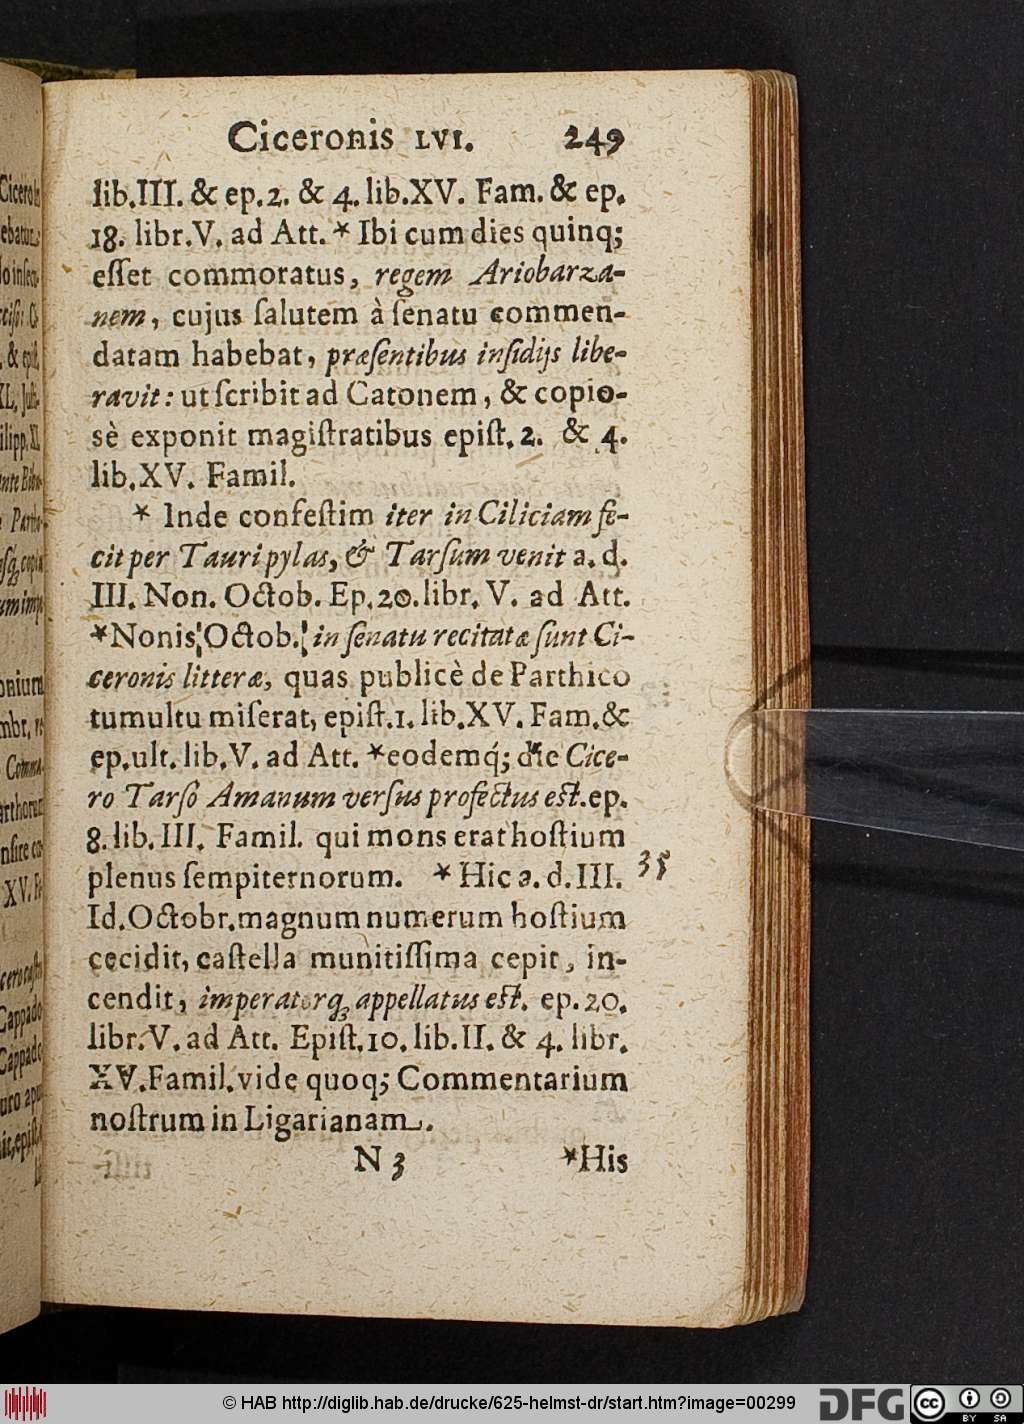 Ciceronis LVI. 249
lib.III. & ep.2. & 4. lib.XV. Fam. & ep.
18. libr.V. ad Att. * Ibi cum dies quinq;
eſſet commoratus, regem Ariobarza-
nem, cujus ſalutem à ſenatu commen-
datam habebat, præſentibus inſidijs libe-
ravit: ut ſcribit ad Catonem, & copio-
sè exponit magiſtratibus epiſt. 2. & 4.
lib.XV. Famil.
* Inde confeſtim iter in Ciliciam fe-
cit per Tauri pylas, & Tarſum venit a. d.
III. Non. Octob. Ep.20.libr. V. ad Att.
*Nonis Octob. in ſenatu recitatæ ſunt Ci-
ceronis litteræ, quas publicè de Parthico
tumultu miſerat, epiſt.1. lib.XV. Fam.&
ep.ult. lib.V. ad Att. *eodemq́; die Cice-
ro Tarſo Amanum verſus profectus eſt.ep.
8.lib.III. Famil. qui mons erat hoſtium
plenus ſempiternorum. * Hic a. d.III. 35
Id.Octobr.magnum numerum hoſtium
cecidit, caſtella munitiſſima cepit, in-
cendit, imperatorq; appellatus eſt. ep.20.
libr.V. ad Att. Epiſt.10.lib.II. & 4. libr.
XV.Famil.vide quoq; Commentarium
noſtrum in Ligarianam.
N 3 *His
© HAB http://diglib.hab.de/drucke/625-helmst-dr/start.htm?image=00299
DFG
cc BY SA